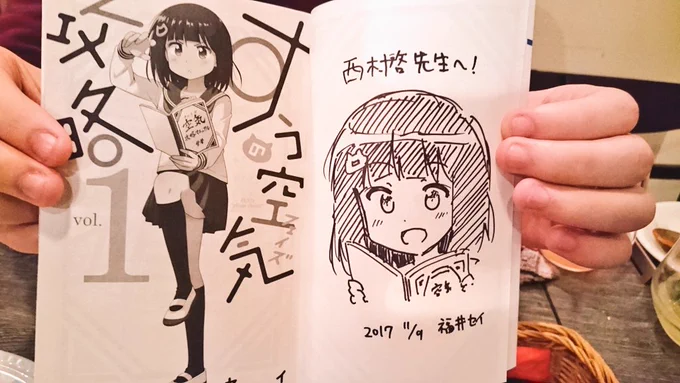 すう空気
攻略。
vol. 1
空気
西村啓先生へ!
2017 11/9 福井セイ